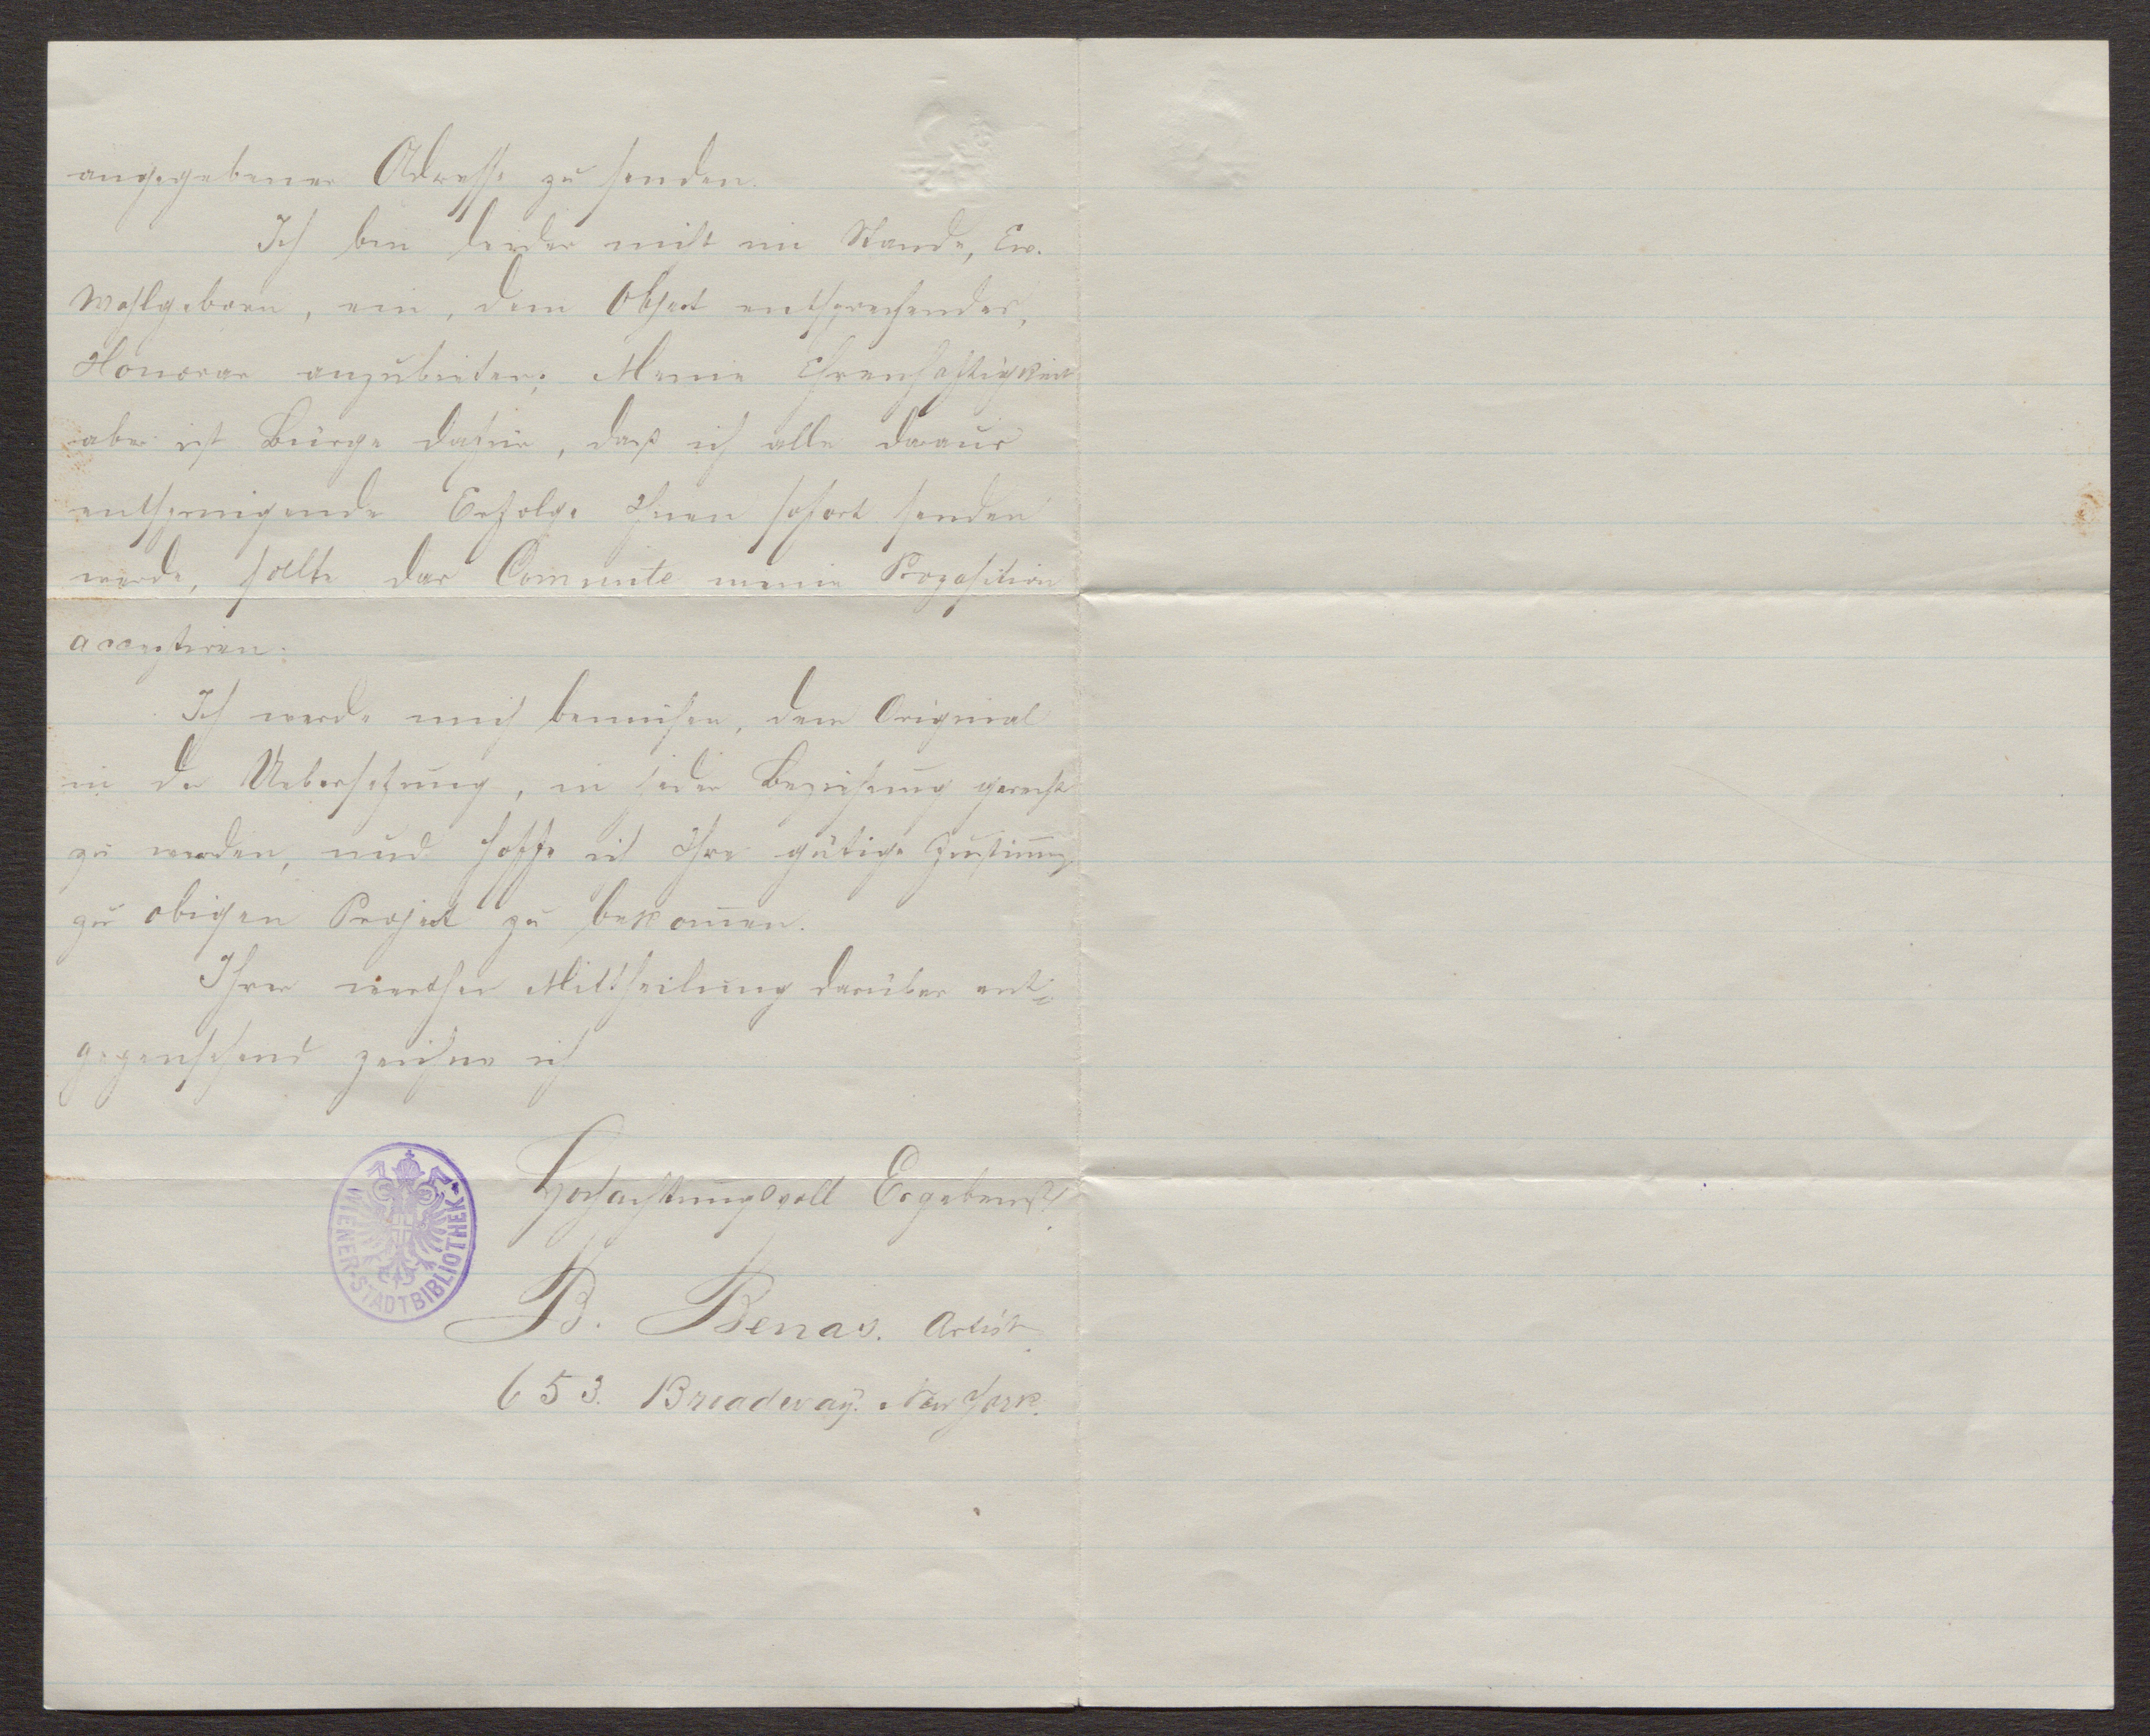 angegebener Adresse zu senden.
Ich bin leider nicht im Stande, Ew.
Wohlgeboren, ein, dem Object entsprechendes,
Honorar anzubieten; Meine Ehrenhaftigkeit
aber ist Bürge dafür, daß ich alle daraus
entspringende Erfolge Ihnen sofort senden
werde, sollte das Commite meine Proposition
acceptiren.
Ich werde mich bemühen, dem Original
in der Uebersetzung, in jeder Beziehung gerecht
zu werden, und hoffe ich Ihre gütige Zustim̄ung
zu obigen Project zu bekom̄en.
Ihrer werthen Mittheilung darüber ent=
gegensehend zeichne ich
Hochachtungsvoll Ergebenst
B. Benas. Artist.
653. Broadway. New York.
WIENER-STADTBIBLIOTHEK